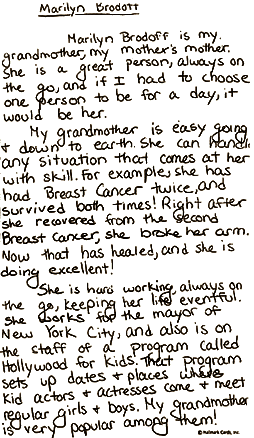 Marilyn Brodoff
Marilyn Brodoff is my
grandmother, my mother's mother.
She is a great person, always on
the go, and if I had to choose
one person to be for a day, it
would be her.
My grandmother is easy going
+ down to earth. She can handle
any situation that comes at her
with skill. For example, she has
had Breast Cancer twice, and
survived both times! Right after
she recovered from the second
Breast cancer, she broke her arm.
Now that has healed, and she is
doing excellent!
She is hard working, always on
the go, keeping her life eventful.
She works for the mayor of
New York City, and also is on
the staff of a program called
Hollywood for kids. That program
sets up dates + places where
kid actors + actresses come + meet
regular girls + boys. My grandmother
is very popular among them!
© Hallmark Cards, Inc.